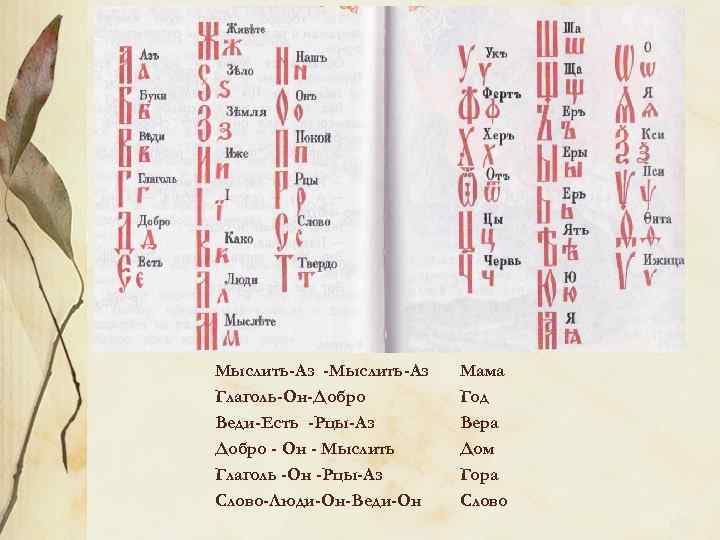 Азъ
А а
Буки
Б б
Вѣди
В в
Глаголь
Г г
Добро
Д д
Есть
Є є
Живѣте
Ж ж
Ѕѣло
Ѕ ѕ
Зѣмля
З з
Иже
И и
І
І ї
Како
К к
Люди
Л л
Мыслѣте
М м
Нашъ
Н н
Онъ
О о
Покой
П п
Рцы
Р р
Слово
С с
Твердо
Т т
Укъ
У у
Фертъ
Ф ф
Херъ
Х х
Отъ
Ѿ ѿ
Цы
Ц ц
Червь
Ч ч
Ша
Ш ш
Ща
Щ щ
Еръ
Ъ ъ
Еры
Ы ы
Ерь
Ь ь
Ять
Ѣ ѣ
Ю
Ю ю
Я
Ꙗ ꙗ
О
Ѡ ѡ
Я
Ѧ ѧ
Кси
Ѯ ѯ
Пси
Ѱ ѱ
Ѳита
Ѳ ѳ
Ижица
Ѵ ѵ
Мыслить-Аз -Мыслить-Аз Мама
Глаголь-Он-Добро Год
Веди-Есть -Рцы-Аз Вера
Добро - Он - Мыслить Дом
Глаголь -Он -Рцы-Аз Гора
Слово-Люди-Он-Веди-Он Слово